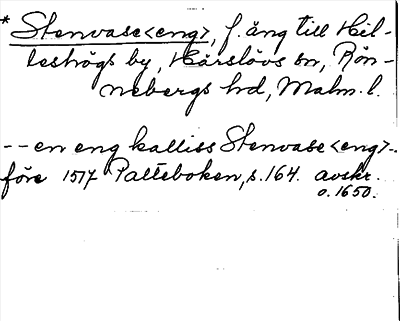 * Stenvase<eng>, f. äng till Hil-
leshögs by, Härslövs sn, Rön-
nebergs hd, Malm. l.
-- en eng kalliss Stenvase <eng> --
före 1517 Palteboken, s. 164. avskr.
o. 1650.